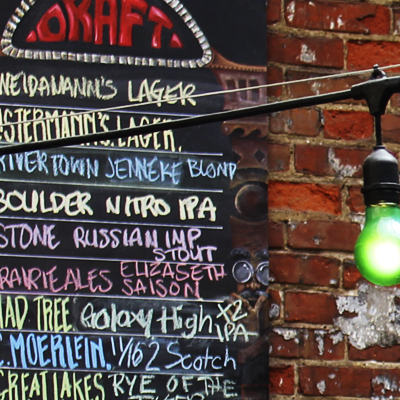 DRAFT.
WEIDAMANN'S LAGER
STERMANN'S LAGER.
RIVERTOWN JENNEKE BLOND
BOULDER NITRO IPA
STONE RUSSIAN IMP
STOUT
PRAIRIE ALES ELIZABETH
SAISON
MAD TREE Galaxy High X2
IPA
C. MOERLEIN, 11/62 Scotch
GREAT LAKES RYE OF THE
TIGER